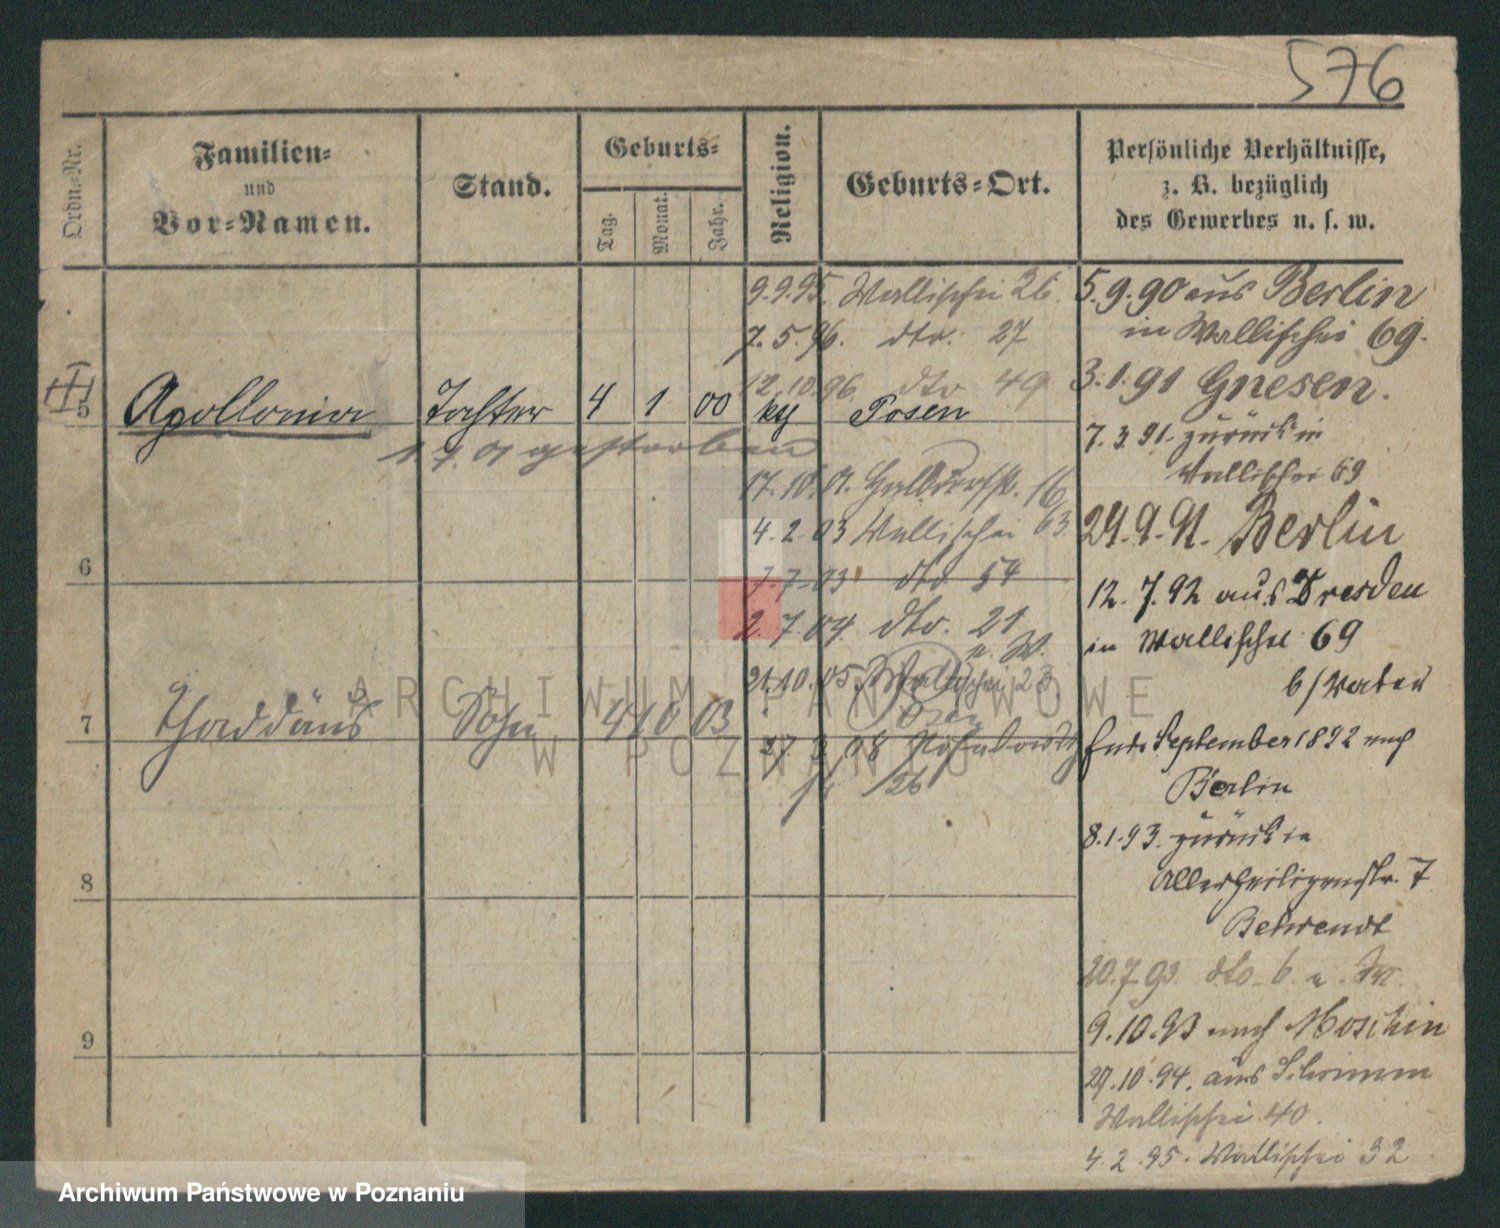 576
Ordn.-Nr.
Familien-
und
Vor-Namen.
Stand.
Geburts-
Tag.
Monat.
Jahr.
Religion.
Geburts-Ort.
Persönliche Verhältnisse,
z. B. bezüglich
des Gewerbes u. s. w.
9.9.95. Wallischei 26
7.5.96. dto. 27
12.10.96. dto 49
5 Apollonia Tochter 4 1 00 kg Posen
gestorben
17.10.01. 16
4.2.03 Wallischei 63
6
7.7.03 dto 54
2.7.04. dto. 21
u. W.
21.10.05 Wallischei 23
7 Thaddäus Sohn 4 10 03
08
26
8
9
5.9.90 aus Berlin
in Wallischei 69.
3.1.91 Gnesen.
7.3.91. zurück in
Wallischei 69
24.9.91. Berlin
12.7.92 aus Dresden
in Wallischei 69
b/Vater
Ende September 1892 nach
Berlin
8.1.93. zurück in
Allerheiligenstr. 7
Behrendt
20.7.93. dto. b.
9.10.93 nach Moschin
29.10.94. aus Schrimm
Wallischei 40.
4.2.95. Wallischei 32
ARCHIWUM PAŃSTWOWE
W POZNANIU
Archiwum Państwowe w Poznaniu